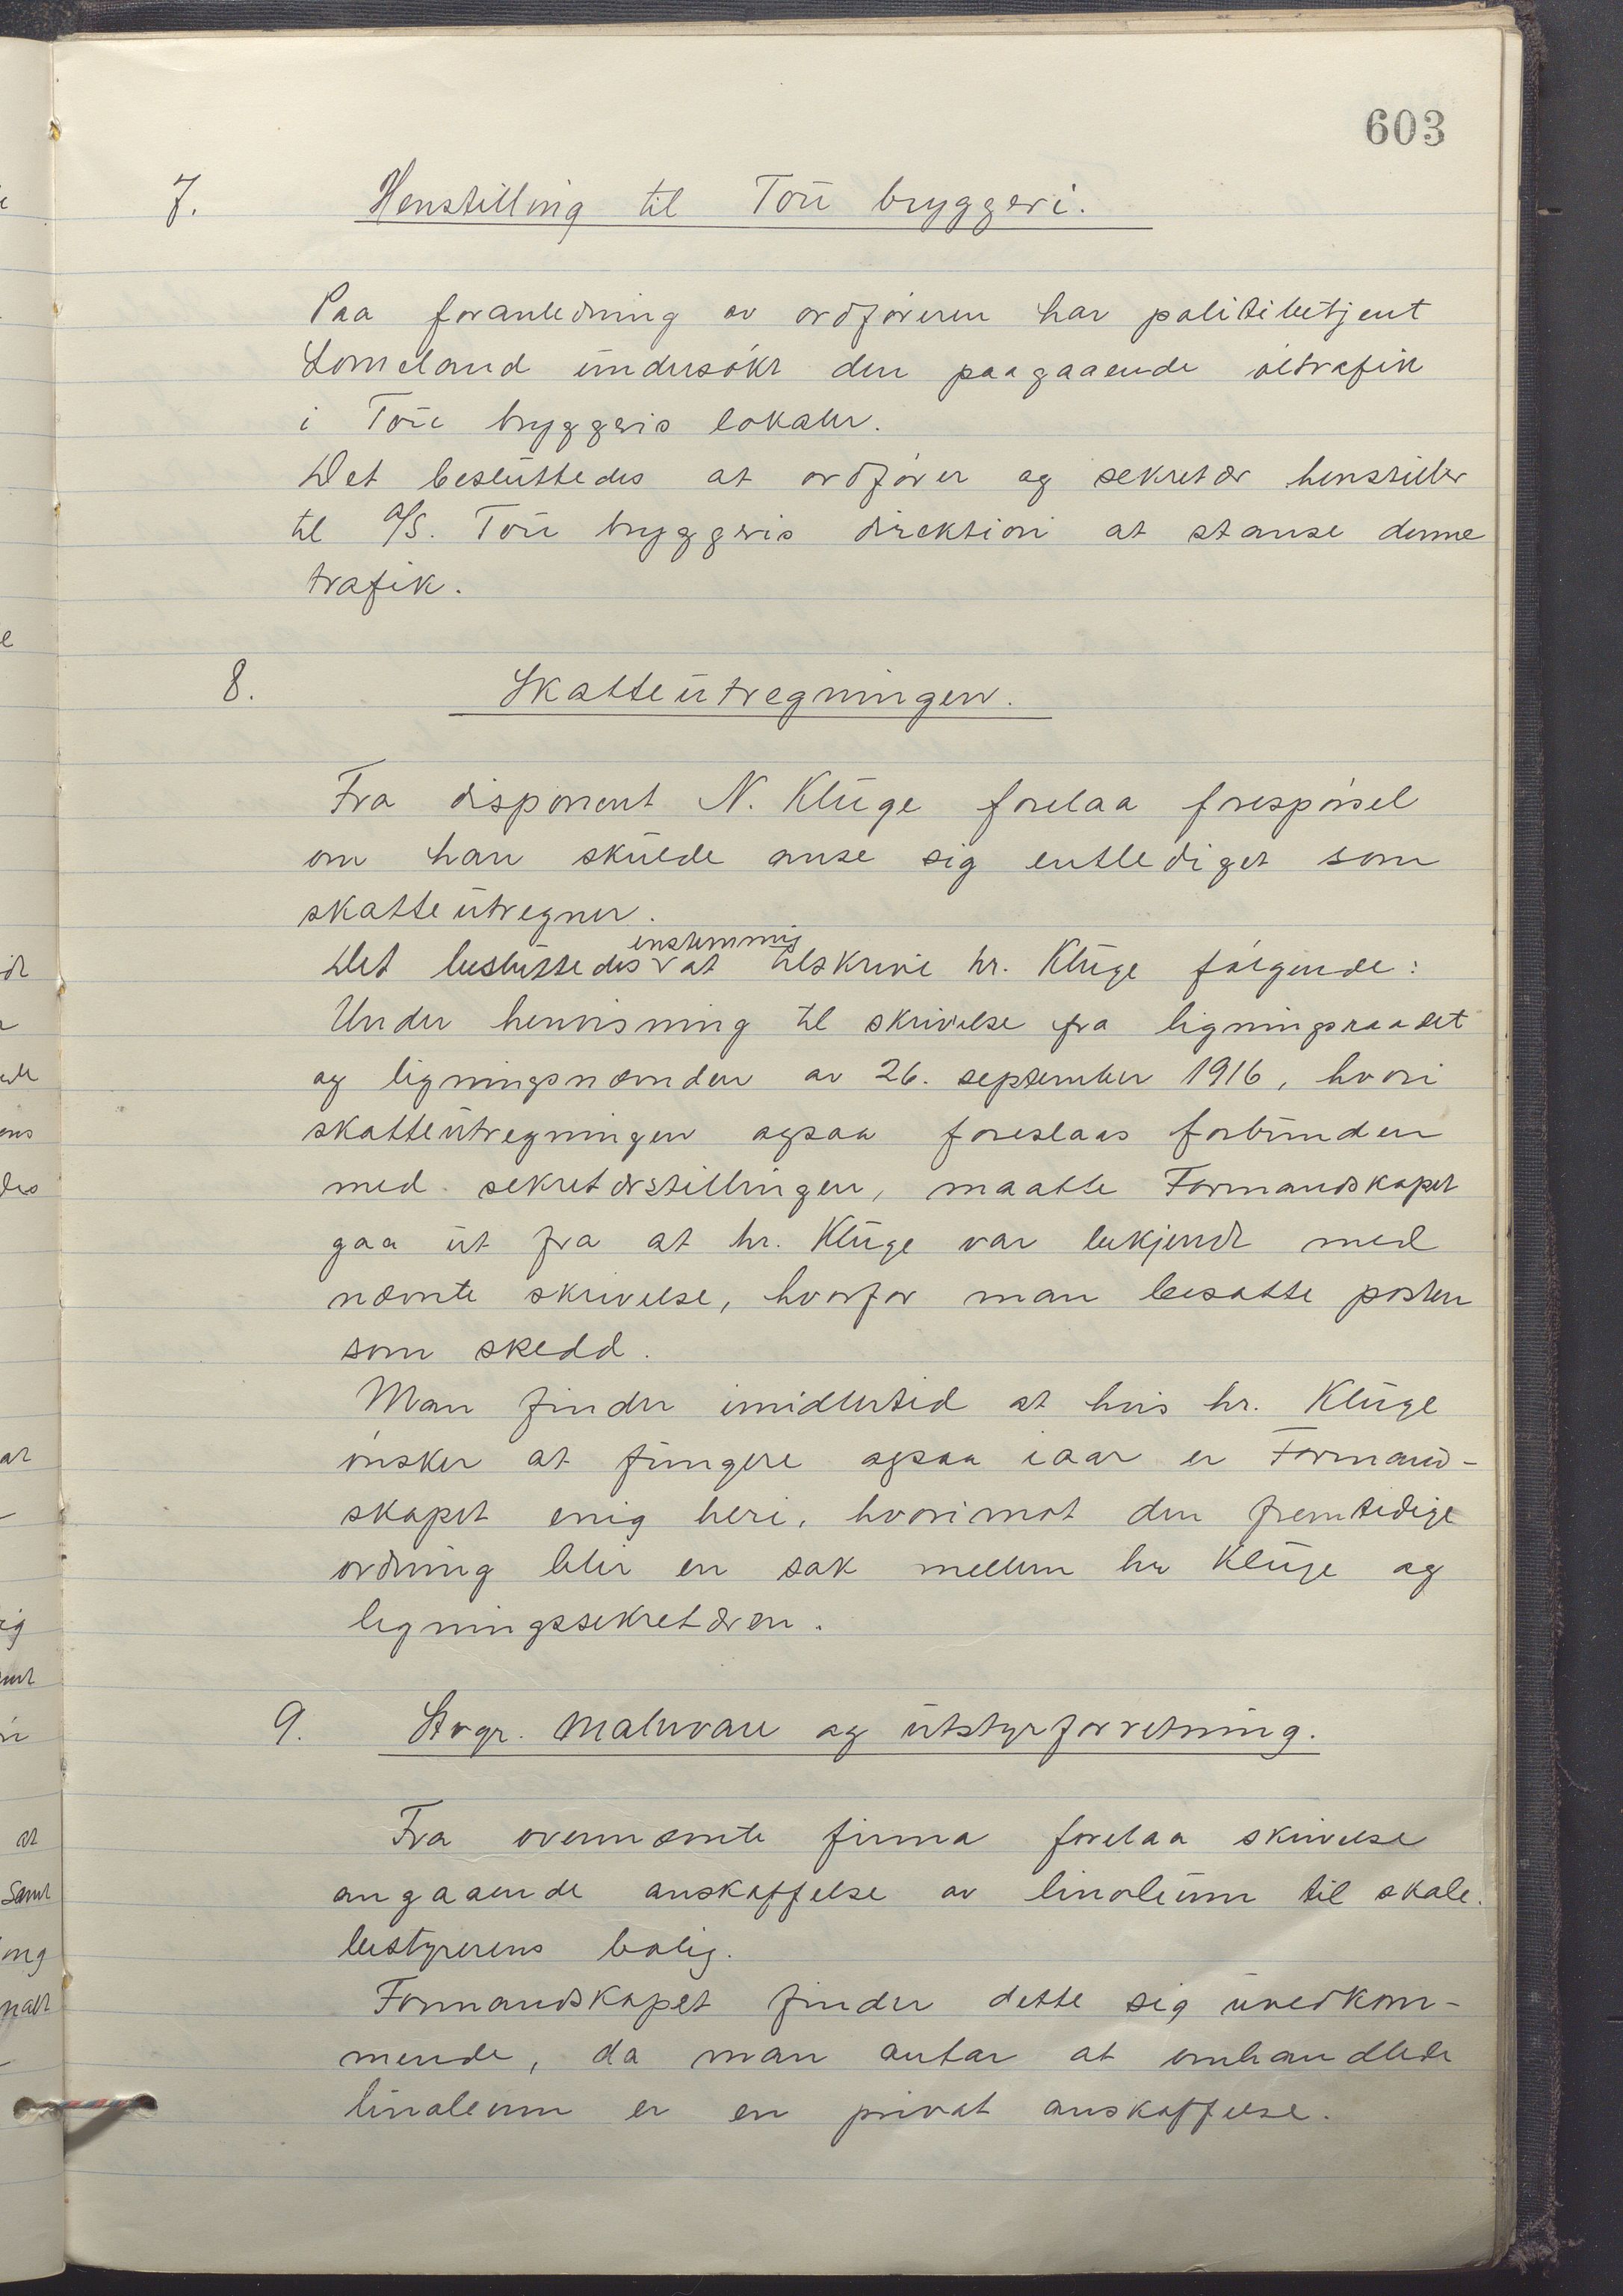 603
7. Henstilling til Tou bryggeri.
Paa foranledning av ordføreren har politibetjent
Lomeland undersøkt den paagaaende øltrafik
i Tou bryggeris lokaler.
Det besluttedes at ordfører og sekretær henstiller
til A/S. Tou bryggeris direktion at stanse denne
trafik.
8. Skatteutregningen.
Fra disponent N. Kluge forelaa forespørsel
om han skulde anse sig entlediget som
skatteutregner.
enstemmig
Det besluttedes at tilskrive hr. Kluge følgende:
Under henvisning til skrivelse fra ligningsraadet
og ligningsnævnden av 26. september 1916, hvori
skatteutregningen ogsaa foreslaas forbunden
med sekretærstillingen, maatte Formandskapet
gaa ut fra at hr. Kluge var bekjendt med
nævnte skrivelse, hvorfor man besatte posten
som skedd.
Man finder imidlertid at hvis hr. Kluge
ønsker at fungere ogsaa iaar er Formand-
skapet enig heri, hvorimot den fremtidige
ordning blir en sak mellem hr Kluge og
ligningssekretæren.
9. Stvgr. Malervare og utstyrforretning.
Fra ovennævnte firma forelaa skrivelse
angaaende anskaffelse av linoleum til skole-
bestyrerens bolig.
Formandskapet finder dette sig uvedkom-
mende, da man antar at omhandlede
linoleum er en privat anskaffelse.